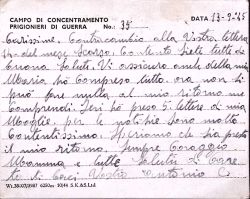 CAMPO DI CONCENTRAMENTO
PRIGIONIERI DI GUERRA No. 35
DATA 13-9-45
Carissime, Contraccambio alla Vostra lettera
del mese Scorso. Contento siete tutte di
buona Salute. Vi assicuro anche della mia
Maria, ho Compreso tutto, ora non si
può fare nulla al mio ritorno mi
Comprendi. Ieri ho preso 5 lettere di mia
Moglie, per le notizie sono molto
Contentissimo. Speriamo che sia presto
il mio ritorno. Sempre Coraggio
Mamma e tutte Saluti
Vostro Antonio C.
S.K.&S.Ltd